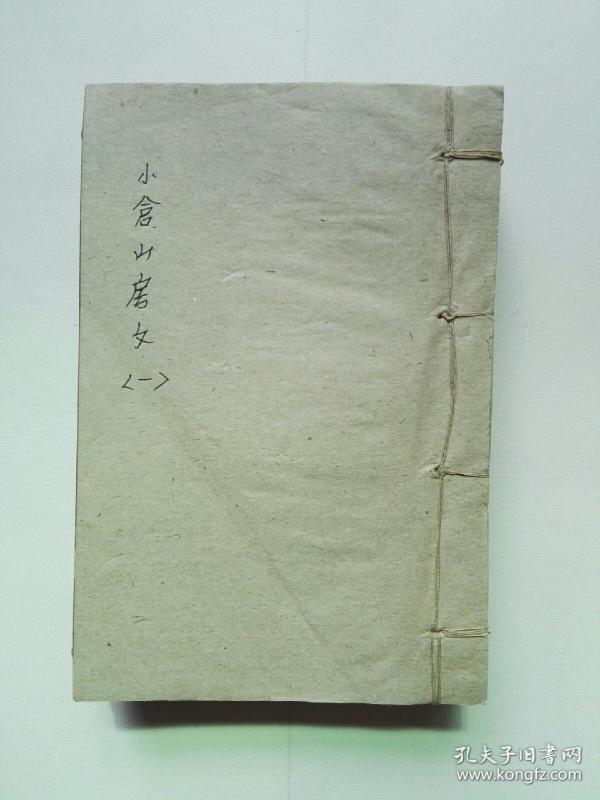 小倉山房文
<一>
孔夫子旧書网
www.kongfz.com